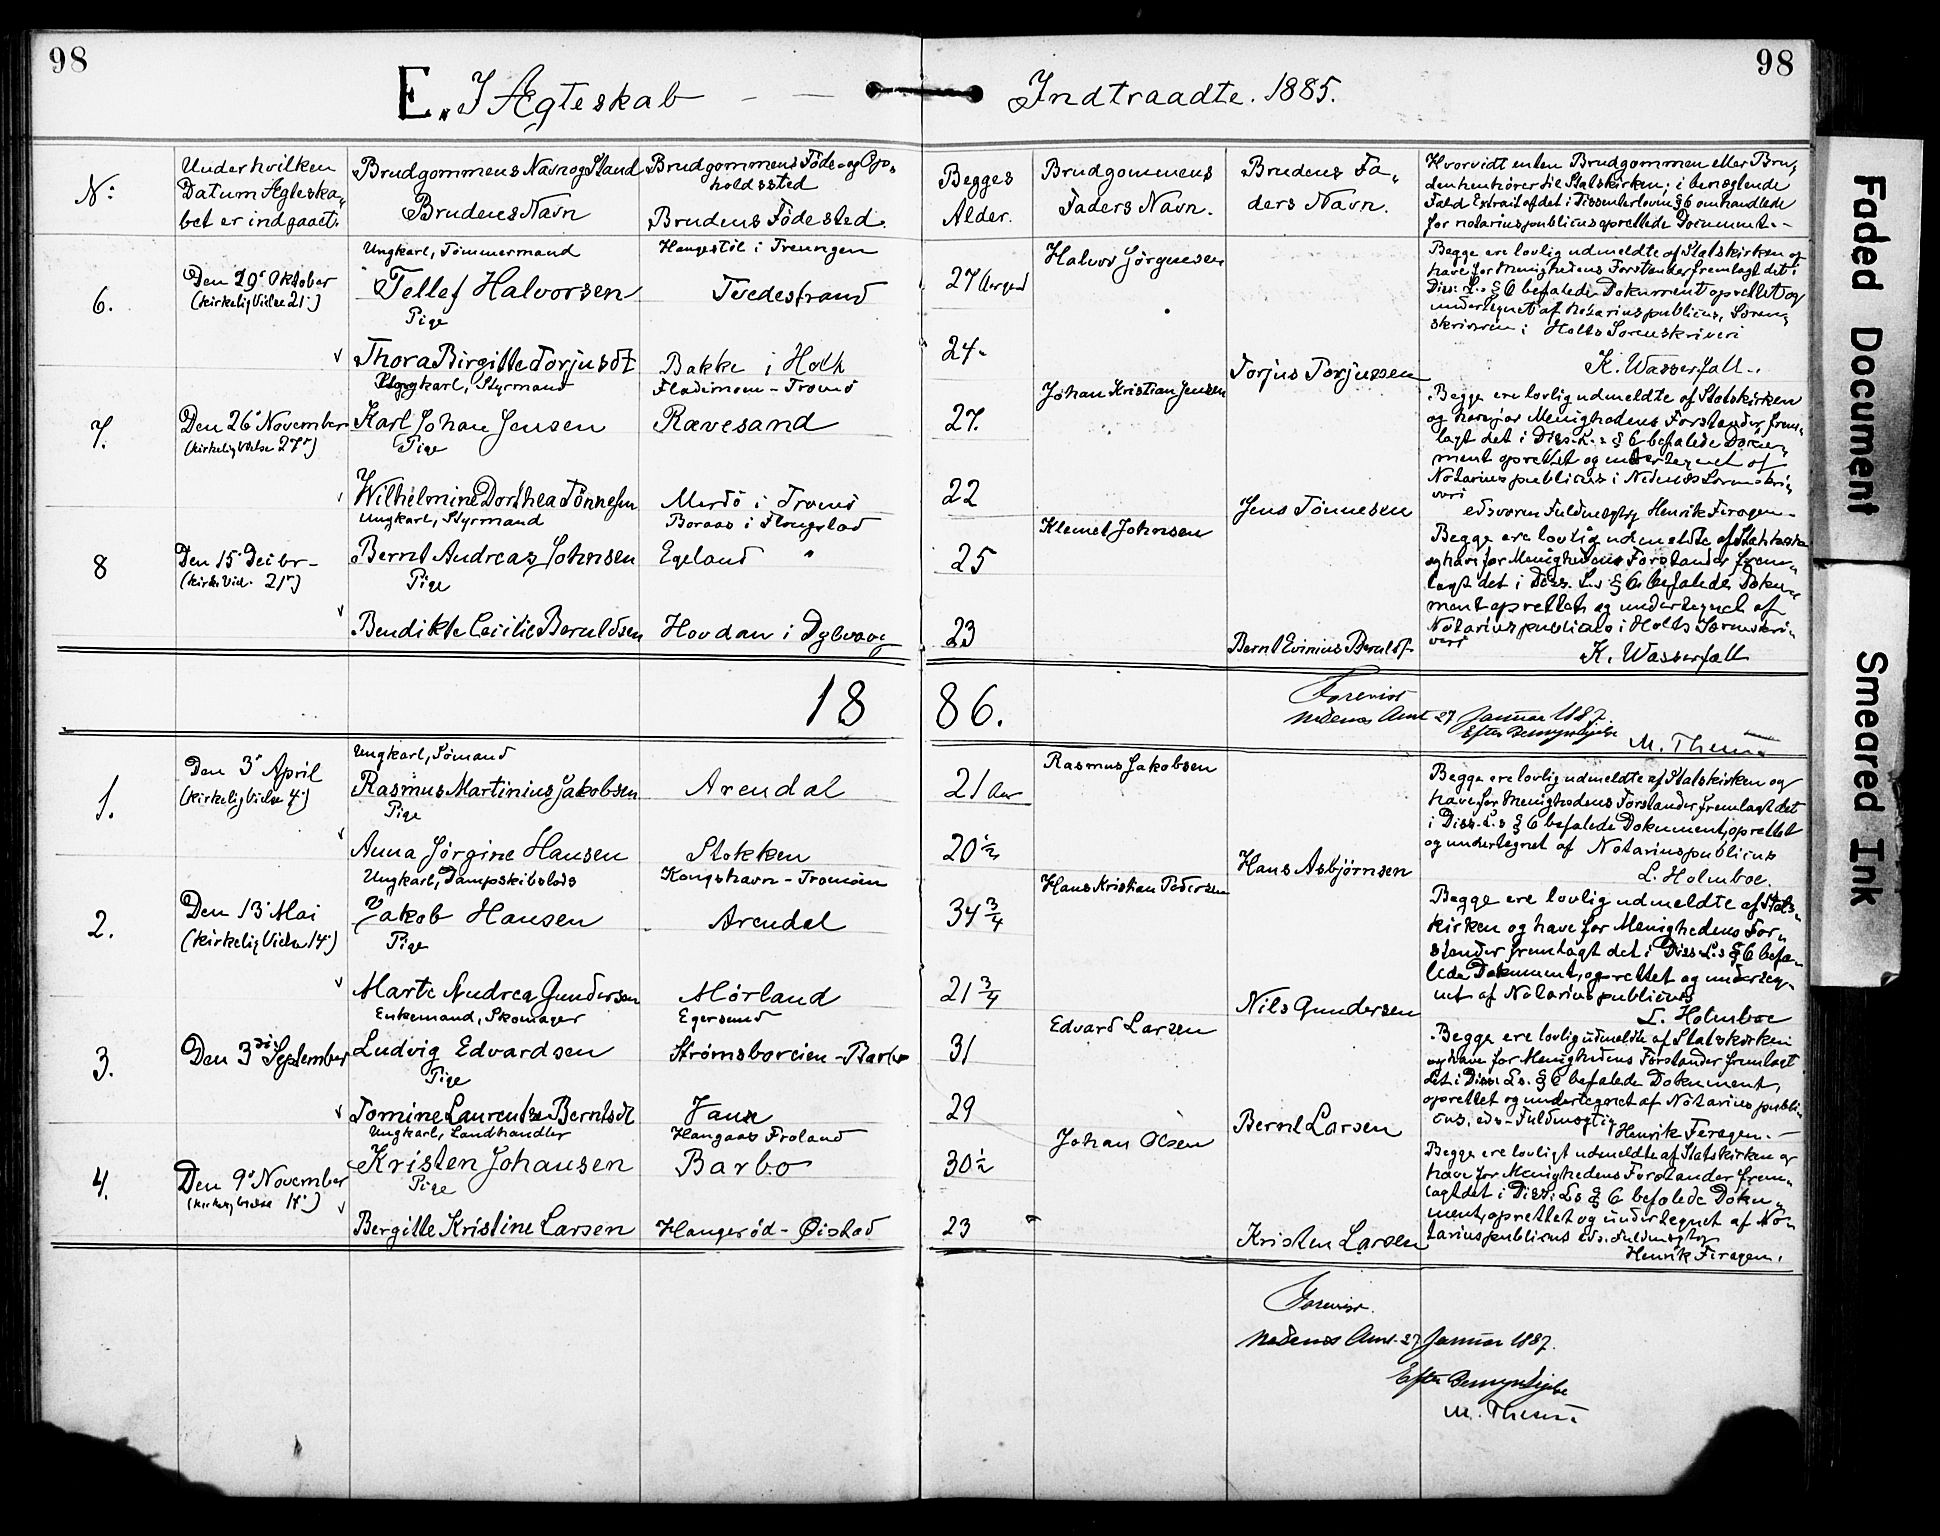 98
98
E. I Ægteskab — — Indtraadte. 1885.
N:
Under hvilken
Datum Ægteska-
bet er indgaaet.
Brudgommens Navn og Stand
Brudens Navn
Brudgommens Föde- og Op-
holdssted
Brudens Födested.
Begges
Alder.
Brudgommens
Faders Navn.
Brudens Fa-
ders Navn.
Hvorvidt enten Brudgommen eller Bru-
den henhörer til Statskirken; i benægtende
Fald Extrakt af det i Dissenterloven § 6 omhandlede
for notarius publicus oprettede Dokument.-
6.
Den 29' Oktober
(kirkelig Vielse 21')
Ungkarl, Tömmermand
Tellef Halvorsen
Pige
Thora Birgitte Torjusdt
Haugestöl i Treungen
Tvedestrand
Bakke i Holt
27 Aar
24-
Halvor Jörgensen
Torjus Torjussen
Begge ere lovlig udmeldte af Statskirken og
have for Menighedens Forstander fremlagt det i
Diss. L.s § 6 befalede Dokument oprettet og
undertegnet af Notarius publicus, Soren-
skriveren i Holts Sorenskriveri
K. Wasserfall..
7.
Den 26' November
(kirkelig Vielse 27')
Ungkarl, Styrmand
Karl Johan Jensen
Pige
Wilhelmine Dorthea Tönnesen
Fladimoen - Tromö
Rævesand
Merdö i Tromö
27.
22
Johan Kristian Jensen
Jens Tönnesen
Begge ere lovlig udmeldte af Statskirken
og have for Menighedens Forstander frem-
lagt det i Diss. L.s § 6 befalede Doku-
ment oprettet og undertegnet af
Notarius publicus i Nedenes Sorenskri-
veri
edsvoren Fuldmægtig Henrik Feragen-
8
Den 15' Decbr -
(kirk. Vid. 21')
Ungkarl, Styrmand
Bernt Andreas Johnsen
Pige
Bendikte Cecilie Beruldsen
Boraas i Flougstad
Egeland "
Hovdan i Dybvaag
25
23
Klemet Johnsen
Bernt Evinius Beruldf
Begge ere lovlig udmeldte af Statskirken
og have for Menighedens Forstander frem-
lagt det i Diss. L.s § 6 befalede Doku-
ment oprettet og undertegnet af
Notarius publicus i Holts Sorenskri-
veri
K. Wasserfall
18 86.
Forevist
Nedenes Amt 27 Januar 1887.
Efter Bemyndigelse
M. Thesen
1.
Den 3' April
(kirkelig Vielse 4')
Ungkarl, Sömand
Rasmus Martinius Jakobsen
Pige
Anna Jörgine Hansen
Arendal
Stokken
21 Aar
20 ½
Rasmus Jakobsen
Hans Asbjörnsen
Begge ere lovlig udmeldte af Statskirken og
have for Menighedens Forstander fremlagt det
i Diss. L.s § 6 befalede Dokument, oprettet
og undertegnet af Notarius publicus
L. Holmboe.
2.
Den 13' Mai
(kirkelig Vielse 14')
Ungkarl, Dampskibslods
Jakob Hansen
Pige
Marte Andrea Gundersen
Kongshavn - Tromöen
Arendal
Mörland
34 ¾
21 ¾
Hans Kristian Pedersen
Nils Gundersen
Begge ere lovlig udmeldte af Stats-
kirken og have for Menighedens For-
stander fremlagt det i Diss L.s § 6 befa-
lede Dokument, oprettet og underteg-
net af Notarius publicus
L. Holmboe
3.
Den 3die September
Enkemand, Skomager
Ludvig Edvardsen
Pige
Tomine Laurentse Berntsdt
Egersund
Strömsboeien - Barbo
29
31
Edvard Larsen
Bernt Larsen
Begge ere lovlig udmeldte af Statskirken
og have for Menighedens Forstander fremlagt
det i Diss. Ls. § 6 befalede Dokument,
oprettet og undertegnet af Notarius publi-
cus, eds-Fuldmægtig
Henrik Feragen.-
4.
Den 9' November
(kirkelig Vielse 11')
Ungkarl, Landhandler
Kristen Johansen
Pige
Bergitte Kristine Larsen
Haugaas Froland
Barbo
Haugeröd - Öistad
30 ½
23
Johan Olsen
Kristen Larsen
Begge ere lovligt udmeldte af Statskirken og
have for Menighedens Forstander frem-
lagt det i Diss. Ls § 6 befalede Doku-
ment, oprettet og undertegnet af No-
tarius publicus eds. Fuldmægtig
Henrik Feragen.
Forevist.
Nedenes Amt. 27 Januar 1887.
Efter Bemyndigelse
M. Thesen
Faded Document
Smeared Ink